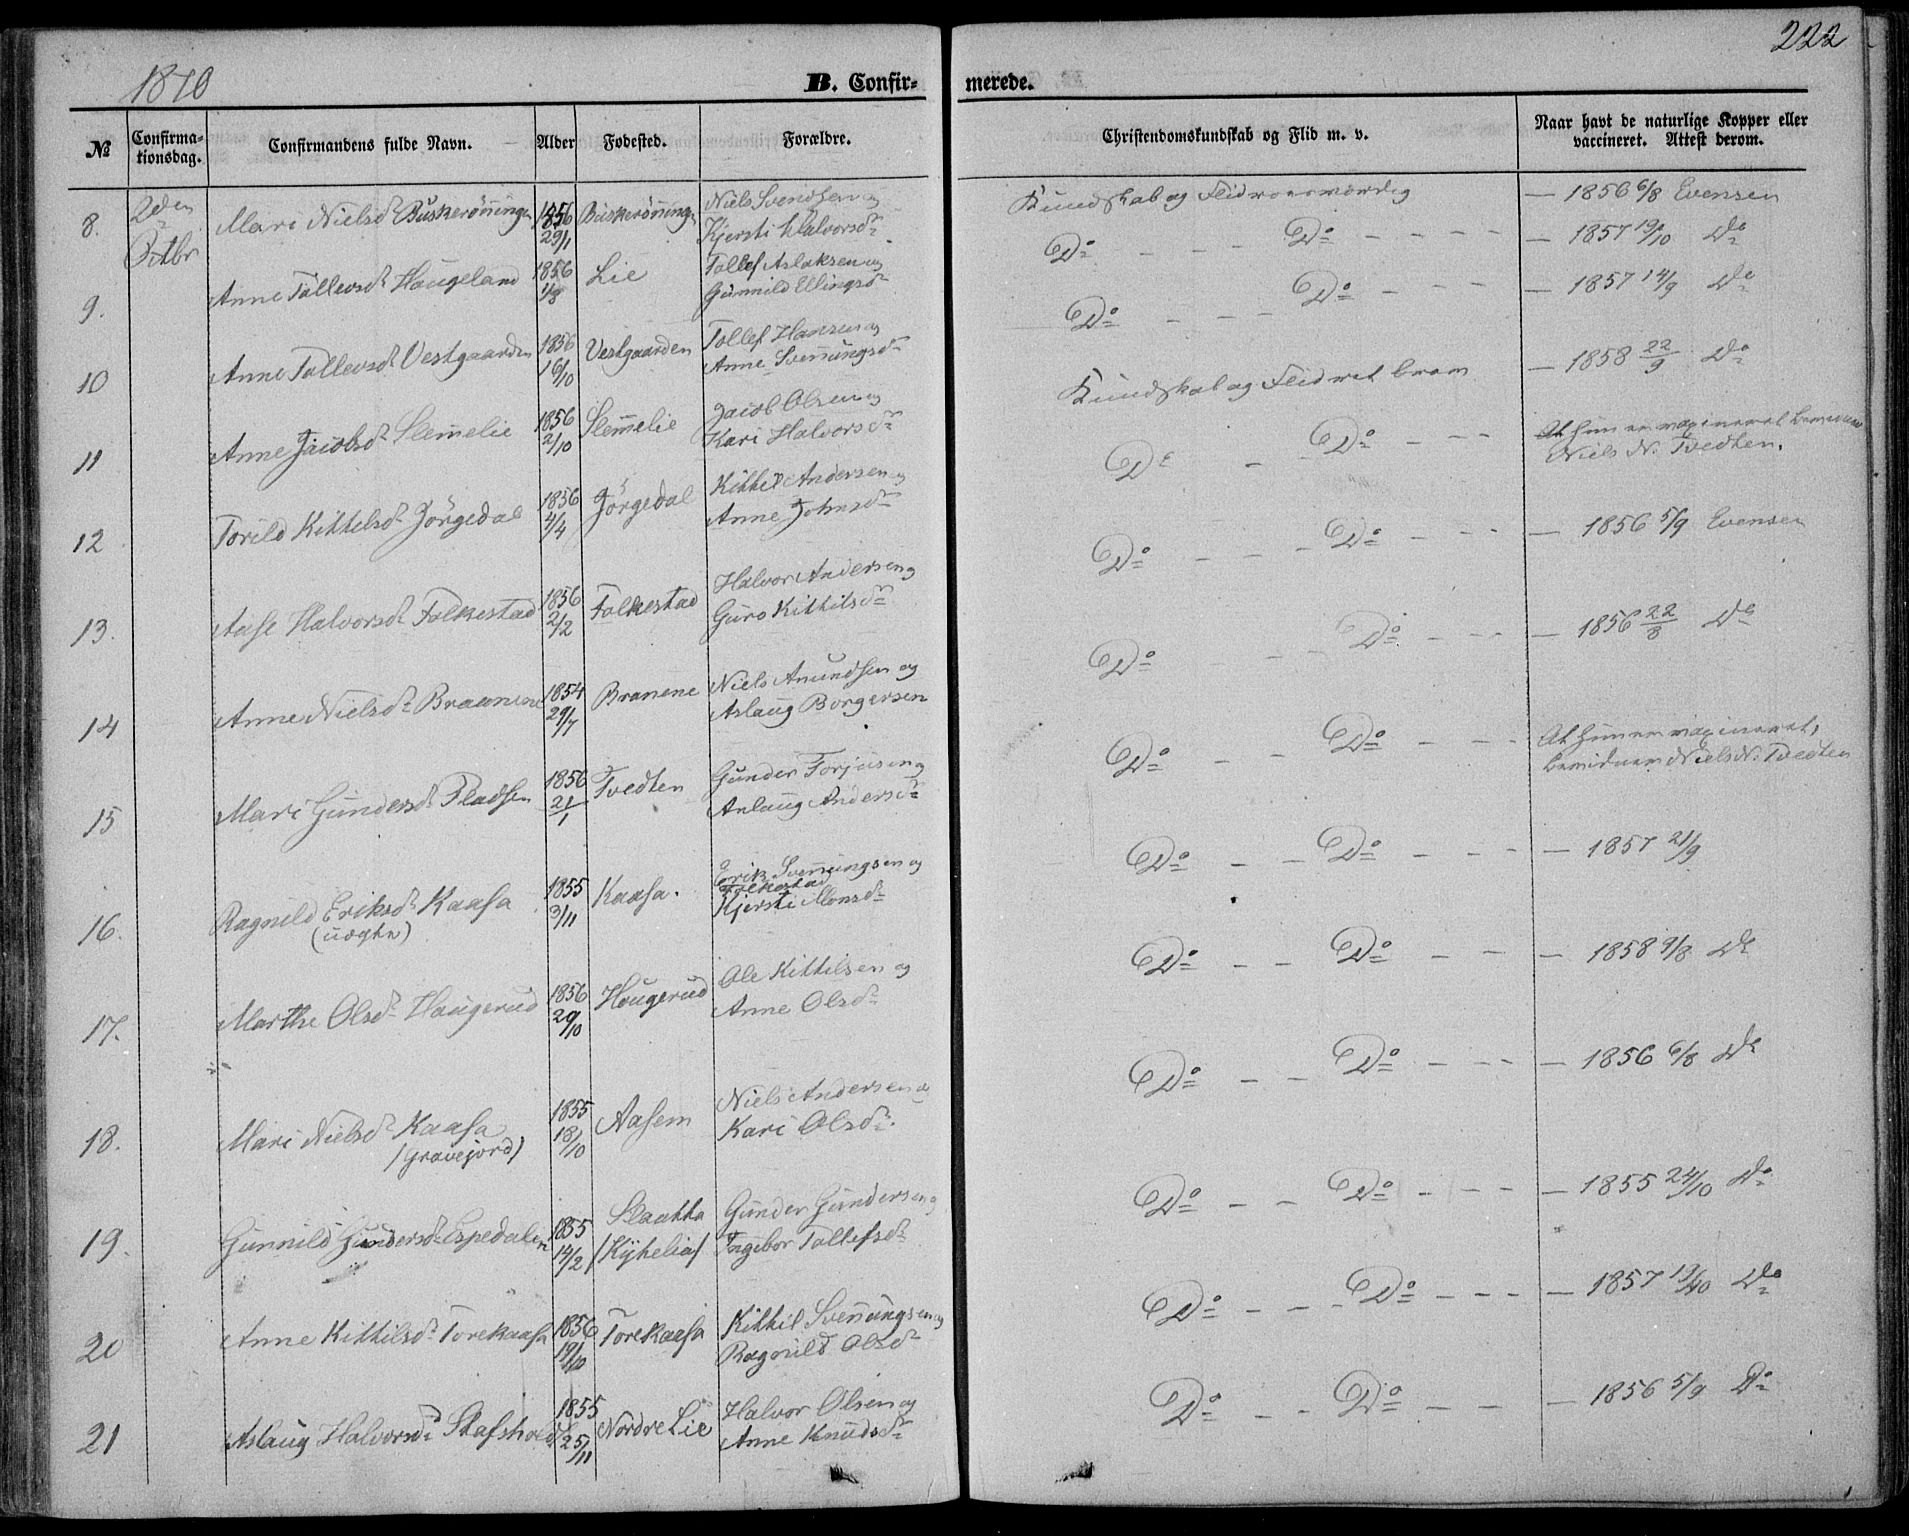 222
1870
B. Confir-
merede.
№
Confirma-
tionsdag.
Confirmandens fulde Navn.
Alder
Fødested.
Forældre.
Christendomskundskab og Flid m. v.
Naar havt de naturlige Kopper eller
vaccineret. Attest derom.
8. 2den Octbr Mari Nielsdr Buskerönningen 1856 29/1 Buskerönningen Niels Svendsen og
Kjersti Halvorsdr
Kundskab og Flid roesværdig — 1856 6/8 Evensen
9. Anne Tollevsdr Haugeland 1856 1/8 Lie Tollef Aslaksen og
Gunnild Ellingsdr
Do — — Do — — — — 1857 19/10 Do
10 Anne Tollevsdr Vestgaarden 1856 16/10 Vestgaarden Tollef Hansen og
Anne Svennungsdr
Do — — — Do — — — 1857 14/9 Do
11 Anne Jacobsdr Slemmelie 1856 2/10 Slemmelie Jacob Olsen og
Kari Halvorsdr
Kundskab og Flid ret bram — 1858 22/9 Do
12 Torild Kittelsdr Jörgedal 1856 4/4 Jörgedal Kittel Andersen og
Anne Johnsdr
Do — — Do — — — At hun er vaxineret bevidner
Niels N. Tvedten.
13. Aase Halvorsdr Folkestad 1856 2/2 Folkestad Halvor Andersen og
Guro Kittilsdr
Do — — — Do — — — — 1856 5/9 Evensen
14 Anne Nielsdr Braanene 1854 29/7 Branene Niels Amundsen og
Aslaug Borgersen
Do — — Do — — — — 1856 22/8 Do
15 Mari Gundersdr Pladsen 1856 21/1 Tvedten Gunder Torjusen og
Anlaug Andersdr
Do — — Do — — — At hun er vaxineret,
bevidner Niels N. Tvedten
16. Ragnild Eriksdr Kaasa 1855 3/11 Kaasa. Erik Svennungsen og
(uægte) Folkestad
Kjersti Monsdr
Do — — Do — — — — 1857 21/9
17. Marthe Olsdr Haugerud 1856 29/10 Haugerud Ole Kittilsen og
Anne Olsdr
Do — — Do — — — 1858 9/8 Do
18. Mari Nielsdr Kaasa 1855 18/10 Aasem Niels Andersen og
/Gravejord/ Kari Olsdr.
Do — — Do — — — — 1856 6/8 Do
19. Gunnild Gundersdr Espedalen 1855 14/2 Slaatta Gunder Gundersen og
/Kyhelia/ Ingebor Tollefsdr
Do — — Do — — — — 1855 24/10 Do
20 Anne Kittilsdr Torekaasa 1856 19/10 Torekaasa Kittil Svennungsen og
Ragnild Olsdr
Do — — — Do — — — — 1857 19/10 Do
21 Aslaug Halvorsdr 1855 25/11 Nordre Lie Halvor Olsen og
Anne Knudsdr
Do — — Do — — — 1856 5/9 Do